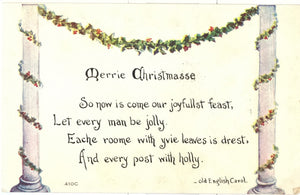 Merrie Christmasse
So now is come our joyfullst feast,
Let every man be jolly.
Eache roome with yvie leaves is drest,
And every post with holly.
_old English Carol.
410C